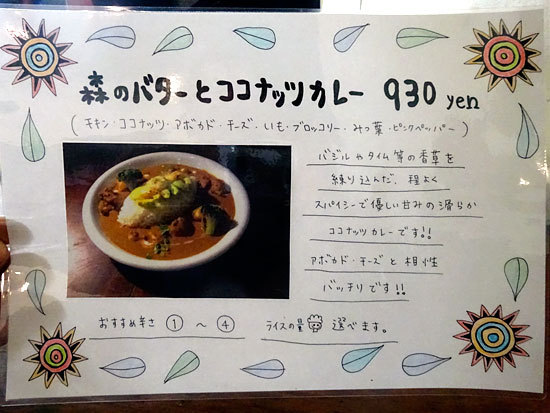 森のバターとココナッツカレー 930 yen
(チキン・ココナッツ・アボカド・チーズ・いも・ブロッコリー・みつ葉・ピンクペッパー)
バジルやタイム等の香草を
練り込んだ、程よく
スパイシーで優しい甘みの滑らか
ココナッツカレーです!!
アボカド・チーズと相性
バッチリです!!
おすすめ辛さ ① 〜 ④ ライスの量 選べます。